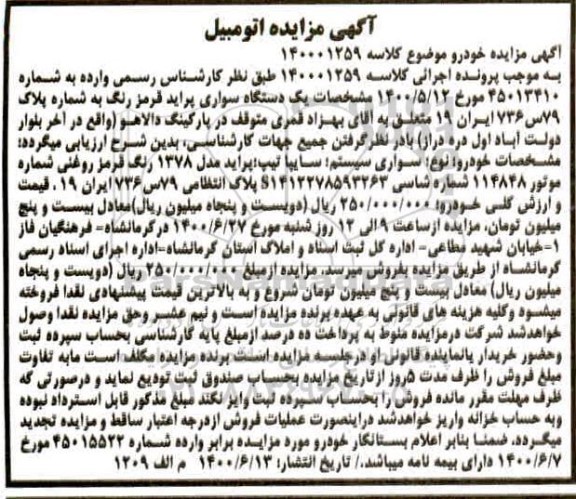 آگهی مزایده اتومبیل
آگهی مزایده خودرو موضوع کلاسه ۱۴۰۰۰۱۲۵۹
به موجب پرونده اجرائی کلاسه ۱۴۰۰۰۱۲۵۹ طبق نظر کارشناس رسمی وارده به شماره
۴۵۰۱۳۴۱۰ مورخ ۱۴۰۰/۵/۱۲ مشخصات یک دستگاه سواری پراید قرمز رنگ به شماره پلاک
۷۹س۷۳۶ ایران ۱۹ متعلق به آقای بهزاد قمری متوقف در پارکینگ دالاهو (واقع در آخر بلوار
دولت آباد اول دره دراز) بادر نظر گرفتن جمیع جهات کارشناسی، بدین شرح ارزیابی میگردد:
مشخصات خودرو: نوع: سواری سیستم: سایپا تیپ: پراید مدل ۱۳۷۸ رنگ قرمز روغنی شماره
موتور ۱۱۴۸۴۸ شماره شاسی S۱۴۱۲۲۷۸۵۹۳۲۶۳ پلاک انتظامی ۷۹س۷۳۶ ایران ۱۹ . قیمت
و ارزش کلی خودرو: ۲۵۰/۰۰۰/۰۰۰ ریال (دویست و پنجاه میلیون ریال)معادل بیست و پنج
میلیون تومان، مزایده ازساعت ۹ الی ۱۲ روز شنبه مورخ ۱۴۰۰/۶/۲۷ درکرمانشاه- فرهنگیان فاز
۱-خیابان شهید مطاعی- اداره کل ثبت اسناد و املاک استان کرمانشاه-اداره اجرای اسناد رسمی
کرمانشاه از طریق مزایده بفروش میرسد. مزایده ازمبلغ ۲۵۰/۰۰۰/۰۰۰ ریال (دویست و پنجاه
میلیون ریال) معادل بیست و پنج میلیون تومان شروع و به بالاترین قیمت پیشنهادی نقدا فروخته
میشود وکلیه هزینه های قانونی به عهده برنده مزایده است و نیم عشر وحق مزایده نقدا وصول
خواهدشد شرکت درمزایده منوط به پرداخت ده درصد ازمبلغ پایه کارشناسی بحساب سپرده ثبت
وحضور خریدار یانماینده قانونی او درجلسه مزایده است برنده مزایده مکلف است مابه تفاوت
مبلغ فروش را ظرف مدت ۵روز ازتاریخ مزایده بحساب صندوق ثبت تودیع نماید و درصورتی که
ظرف مهلت مقرر مانده فروش را بحساب سپرده ثبت واریز نکند مبلغ مذکور قابل استرداد نبوده
وبه حساب خزانه واریز خواهدشد دراینصورت عملیات فروش ازدرجه اعتبار ساقط و مزایده تجدید
میگردد. ضمنا بنابر اعلام بستانکار خودرو مورد مزایده برابر وارده شماره ۴۵۰۱۵۵۲۲ مورخ
۱۴۰۰/۶/۷ دارای بیمه نامه میباشد./ تاریخ انتشار: ۱۴۰۰/۶/۱۳ م الف ۱۲۰۹